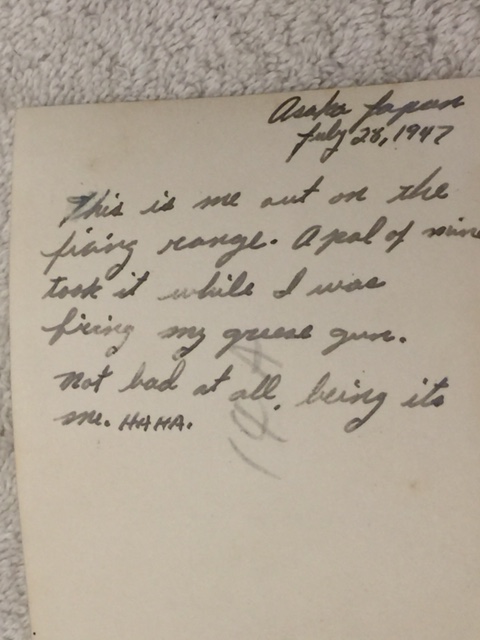 Asaka Japan
July 28, 1947
This is me out on the
firing range. A pal of mine
took it while I was
firing my grease gun.
Not bad at all, being its
me. HAHA.